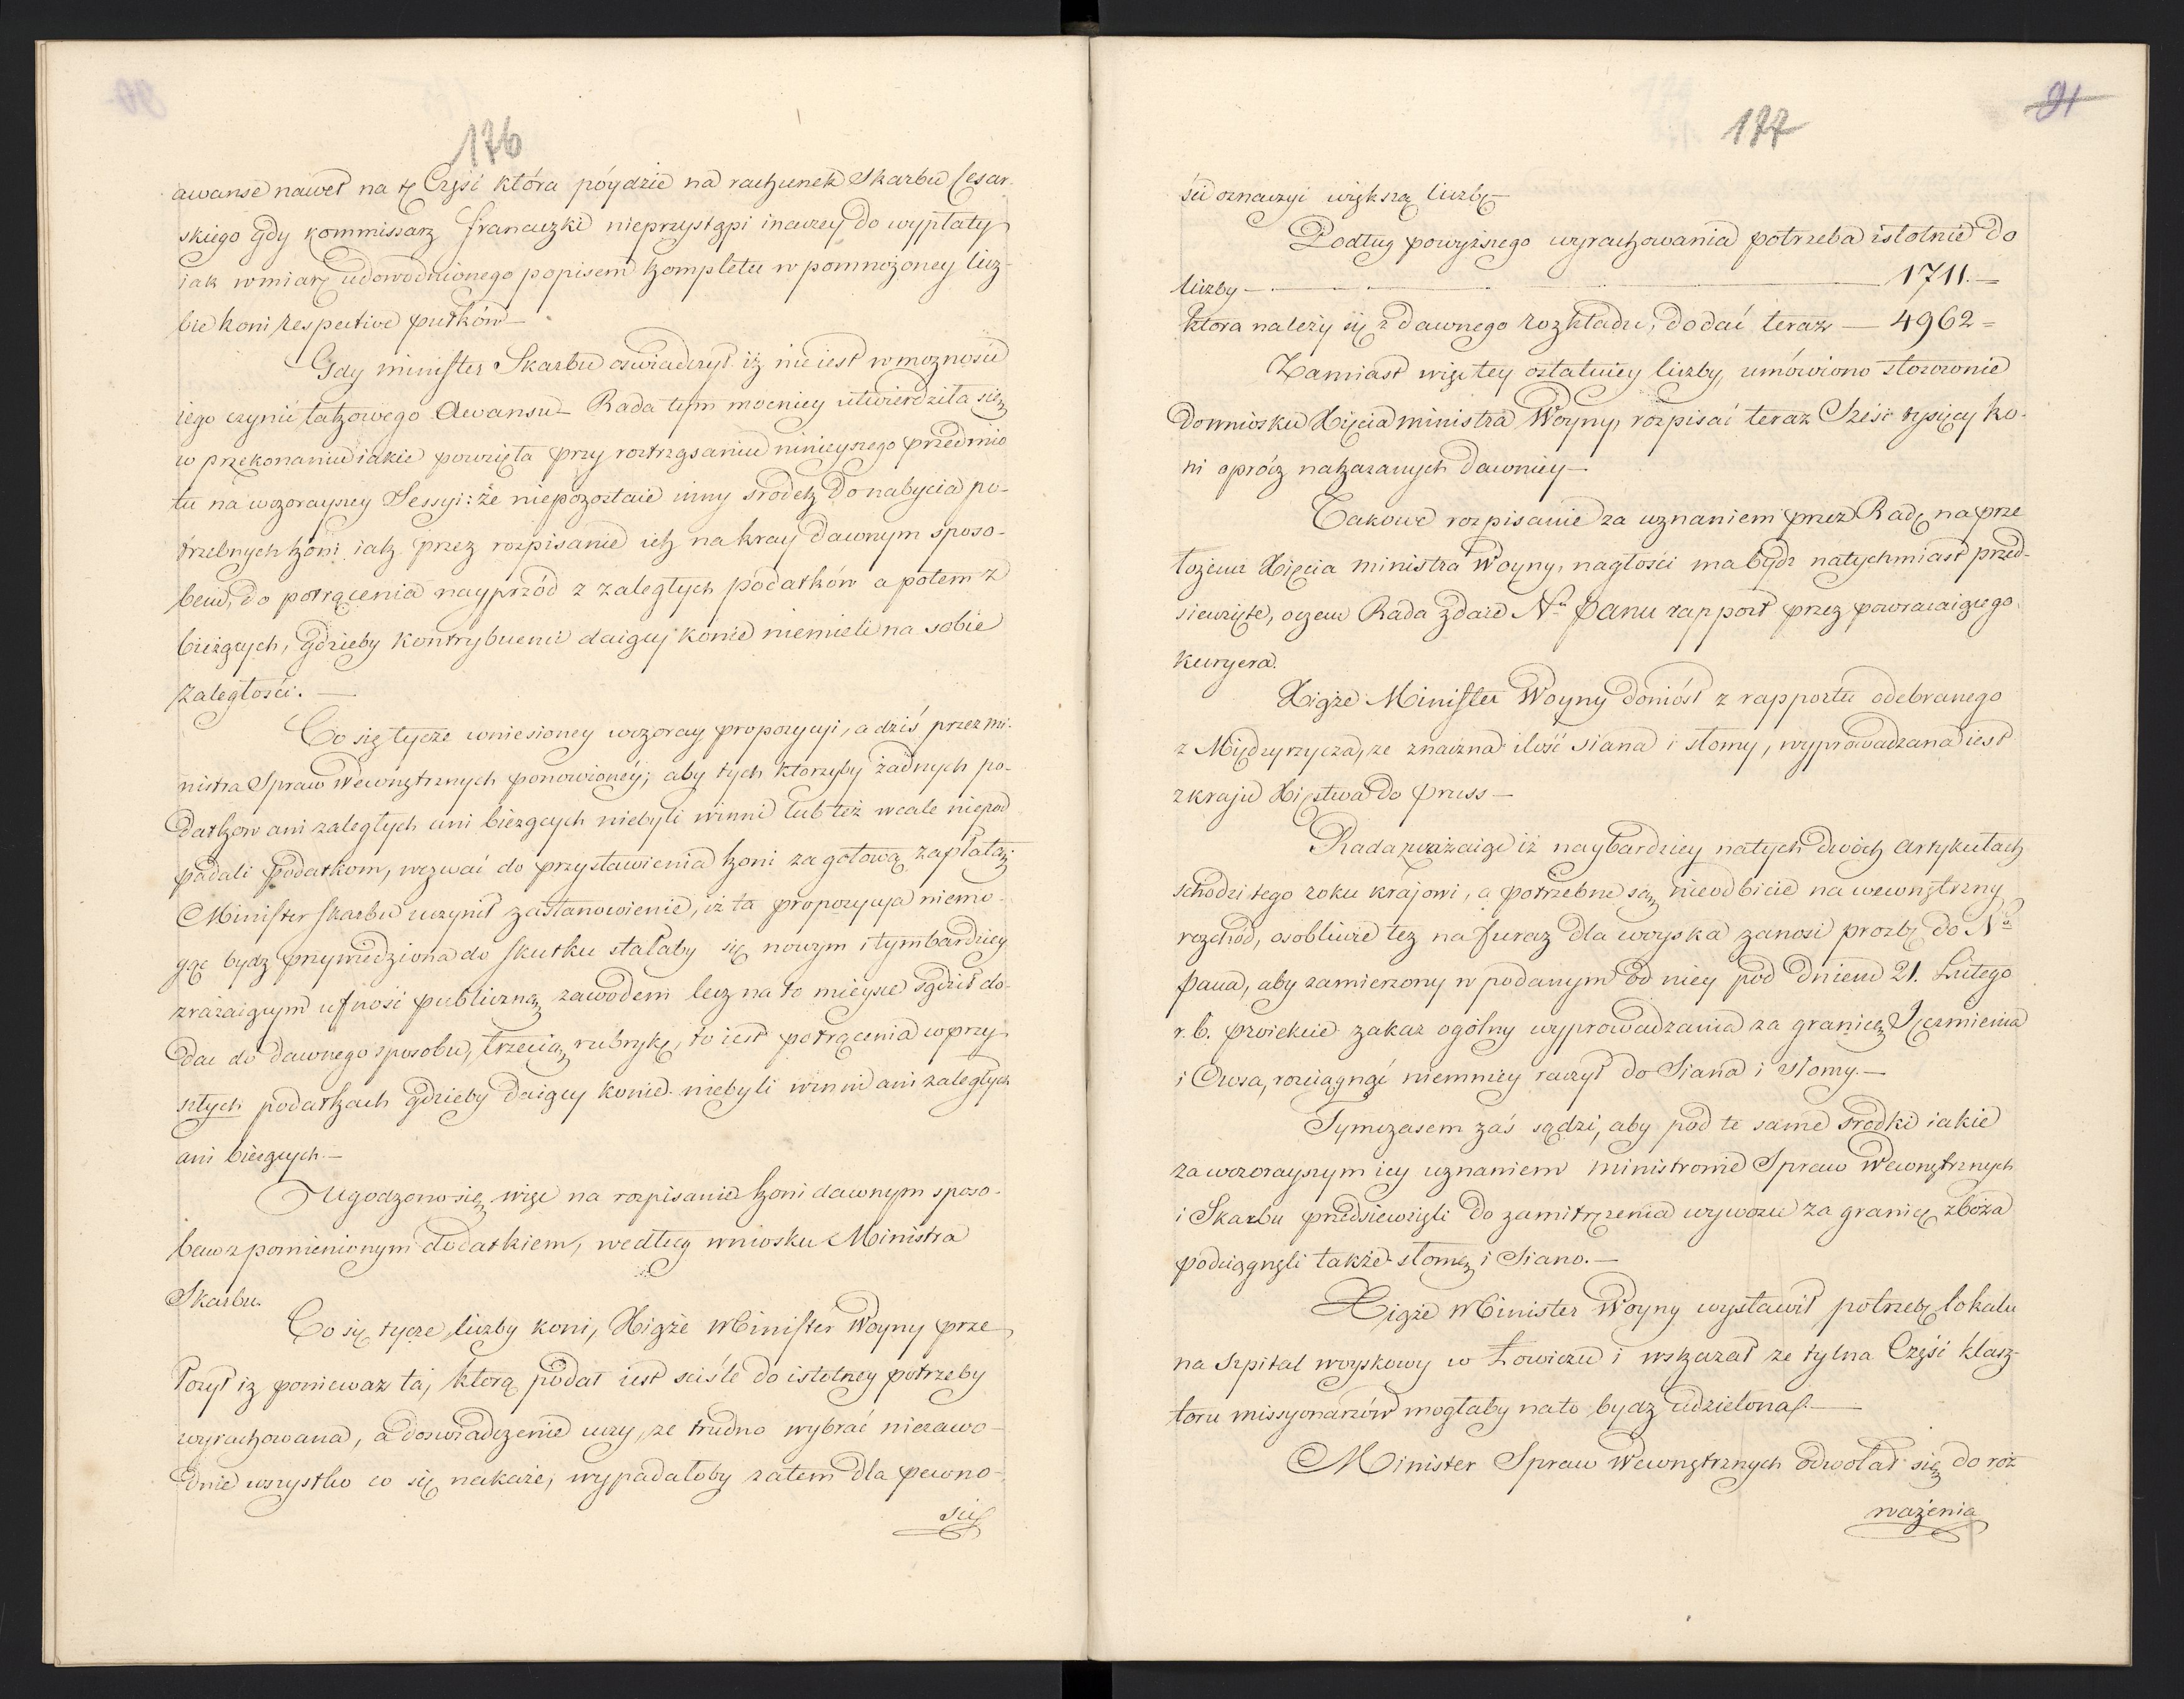 176
awanse nawet na tę Część która póydzie na rachunek Skarbu Cesar-
skiego gdy kommissarz francuzki nieprzystąpi inaczey do wypłaty
iak wmiarę udowodnionego popisem kompletu w pomnożoney licz-
bie koni respective pułków —
Gdy minister Skarbu oswiadczył iż nie iest w moznosci
iego czynić takowego Awansu — Rada tym mocniey utwierdziła się
w przekonaniu iakie powzięła przy roztrząsaniu ninieyszego przedmio
tu na wczorayszey Sessyi: że niepozostaie inny srodek do nabycia po-
trzebnych koni iak przez rozpisanie ich na kray dawnym sposo-
bem, do potrącenia nayprzód z zaległych podatków a potem z
bieżących, gdzieby kontrybuenci daiący konie niemieli na sobie
zaległości. —
Co się tycze wniesioney wczoray propozycyi, a dziś przez mi-
nistra Spraw Wewnętrznych ponowioney; aby tych ktorzyby żadnych po-
datkow ani zaległych ani bieżących niebyli winni lub też wcale niepod
padali podatkom, wezwać do przystawienia koni za gotową zapłatą;
Minister skarbu uczynił zastanowienie, iż ta propozycya niemo-
gąc bydz przywiedziona do skutku stałaby się nowym i tymbardziey
zrażaiącym ufność publiczną zawodem lecz na to mieysce sądził do-
dac do dawnego sposobu, trzecią rubrykę, to iest potrącenia w przy
szłych podatkach gdzieby daiący konie niebyli winni ani zaległych
ani bieżących. —
Ugodzono się więc na rozpisanie koni dawnym sposo-
bem z pomienionym dodatkiem, według wniosku Ministra
Skarbu.
Co się tycze liczby koni, Xiąże Minister Woyny prze
łożył iz poniewaz ta, ktorą podał iest sciśle do istotney potrzeby
wyrachowana, a doswiadczenie uczy, ze trudno wybrać niezawo-
dnie wszystko co się nakaże, wypadałoby zatem dla pewno-
ści
91
177
ści oznaczyć większą liczbę —
Podług powyższego wyrachowania potrzeba istotnie do
liczby — 1711. —
ktora należy się z dawnego rozkładu, dodać teraz — 4962 =
Zamiast więc tey ostatniey liczby, umówiono stosownie
do wniosku Xięcia ministra Woyny, rozpisać teraz Sześć tysięcy ko-
ni oprócz nakazanych dawniey —
Takowe rozpisanie za uznaniem przez Radę na prze
łożenie Xięcia ministra Woyny, nagłości ma bydz natychmiast przed-
siewzięte, oczem Rada zdaie Nu Panu rapport przez powracaiącego
kuryera.
Xiąże Minister Woyny doniósł z rapportu odebranego
z Międzyrzycza, ze znaczna ilość siana i słomy, wyprowadzana iest
z kraju Xięstwa do Pruss —
Rada zważaiąc iż naybardziey na tych dwóch artykułach
schodzi tego roku krajowi, a potrzebne są nieodbicie na wewnętrzny
rozchód, osobliwie tez na furaz dla woyska zanosi prozbę do No
Pana, aby zamierzony w podanym od niey pod dniem 21. Lutego
r. b. proiekcie zakaz ogólny wyprowadzania za granicę Jęczmienia
i Owsa, rozciągnąć niemniey raczył do Siana i słomy. —
Tymczasem zaś sądzi, aby pod te same środki iakie
za wczorayszym iey uznaniem ministrowie Spraw Wewnętrznych
i Skarbu przedsiewzięli do zamitrężenia wywozu za granicę zboża
podciągnęli także słomę i Siano. —
Xiąże Minister Woyny wystawił potrzebę lokalu
na szpital woyskowy w Łowiczu i wskazał ze tylna Część klasz-
toru missyonarzów mogłaby na to bydz udzieloną. —
Minister Spraw Wewnętrznych odwołał się do roz
ważenia